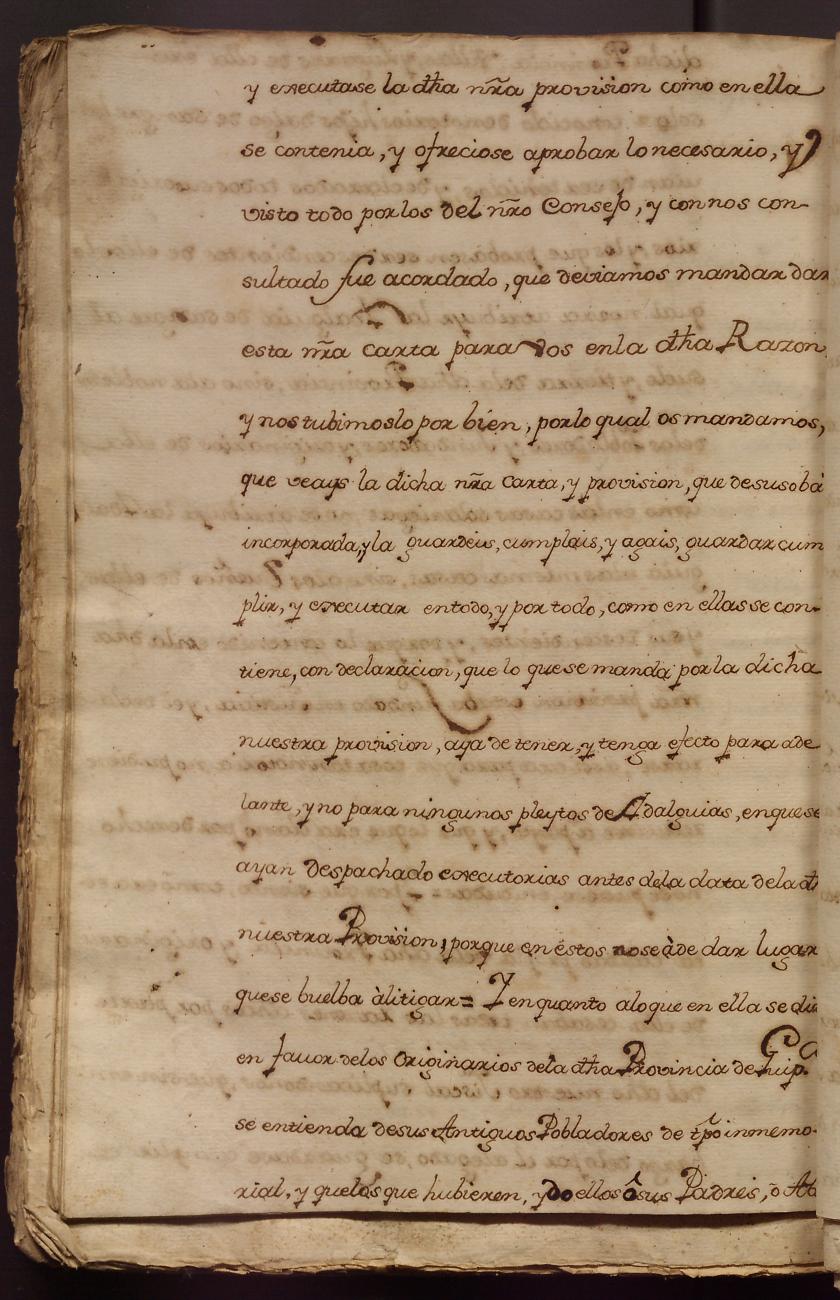 y executase la dha nr̃a provision como en ella
se contenia, y ofreciose aprobar lo necesario, y
visto todo por los del nr̃o Consejo, y con nos con-
sultado fue acordado, que deviamos mandar dar
esta nr̃a carta para vos en la dha Razon
y nos tubimoslo por bien, por lo qual os mandamos,
que veays la dicha nr̃a Carta, y provision, que desuso bà
incorporada, y la guardeis, cumplais, y agais, guardar cum
plir, y executar en todo, y por todo, como en ellas se con-
tiene, con declaracion, que lo que se manda por la dicha
nuestra provision, aya de tener, y tenga efecto para ade
lante, y no para ningunos pleytos de Adalguias, en que se
ayan Despachado executorias antes dela data dela dh
nuestra Provision, porque en éstos no se à de dar lugar
que se buelba àlitigar= Y en quanto alo que en ella se di
en favor delos Originarios dela dha Provincia de Guip.ca
se entienda de sus Antiguos Pobladores de tp̃o inmemo-
rial, y quelos que hubieren, y do ellos ô sus Padres, ò Ab